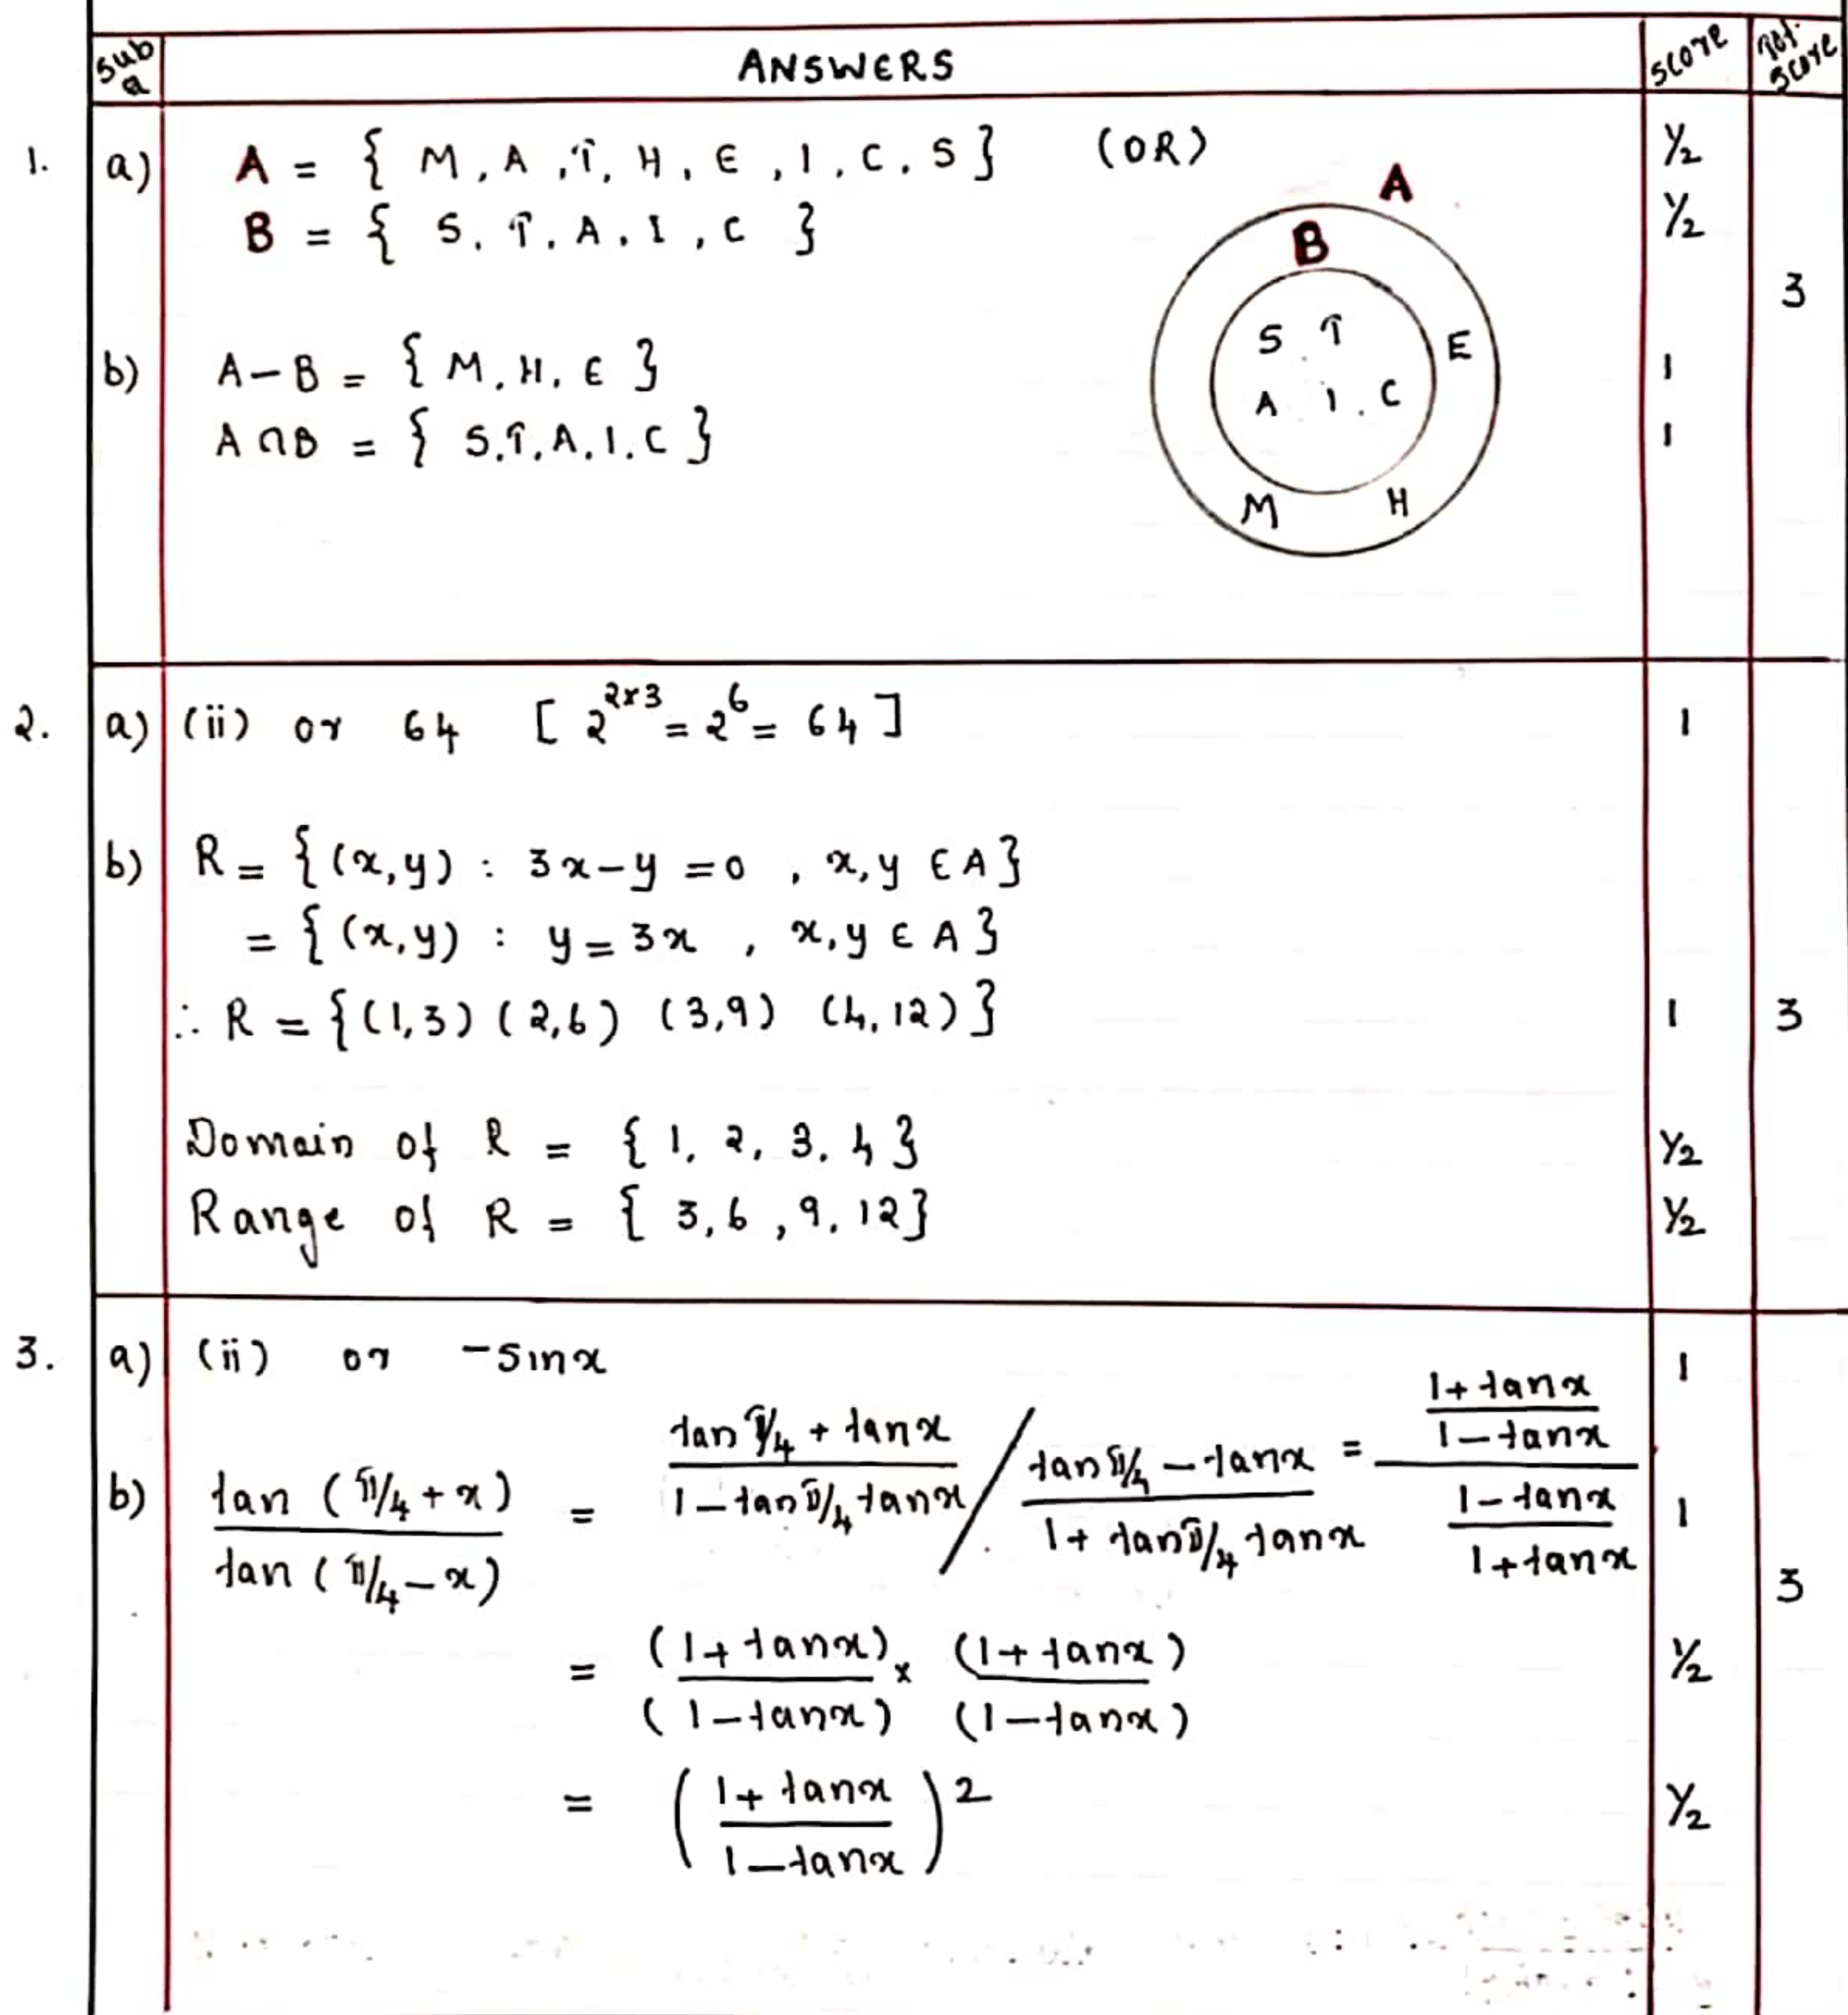 Sub Q ANSWERS Score Tot. Score
1. a) A = { M, A, T, H, E, I, C, S } (OR) A ½
B = { S, T, A, I, C } B ½
3
S T E
b) A − B = { M, H, E } 1
A I, C
A ∩ B = { S, T, A, I, C } 1
M H
2. a) (ii) or 64 [ 2^{2×3} = 2^6 = 64 ] 1
b) R = { (x,y) : 3x − y = 0 , x,y ∈ A }
= { (x,y) : y = 3x , x,y ∈ A }
∴ R = { (1,3) (2,6) (3,9) (4,12) } 1 3
Domain of R = { 1, 2, 3, 4 } ½
Range of R = { 3, 6, 9, 12 } ½
3. a) (ii) or −sinx 1
b) tan (π/4 + x) / tan (π/4 − x) = (tan π/4 + tanx) / (1 − tan π/4 tanx) / (tan π/4 − tanx) / (1 + tan π/4 tanx) = ((1 + tanx) / (1 − tanx)) / ((1 − tanx) / (1 + tanx)) 1
3
= (1 + tanx) / (1 − tanx) × (1 + tanx) / (1 − tanx) ½
= ( (1 + tanx) / (1 − tanx) )^2 ½